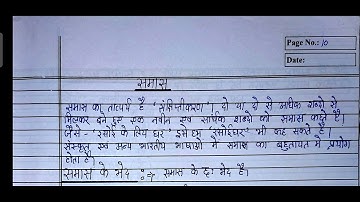 Page No.: 10
Date:
समास
समास का तात्पर्य है 'संक्षिप्तीकरण', दो या दो से अधिक शब्दो से
मिलकर बने हुए एक नवीन एवं सार्थक शब्दो को समास कहते हैं।
जैसे - 'रसोई के लिए घर' इसे हम 'रसोईघर' भी कह सकते हैं।
संस्कृत एवं अन्य भारतीय भाषाओं में समास का बहुतायत में प्रयोग
होता है।
समास के भेद :-> समास के छः भेद हैं।